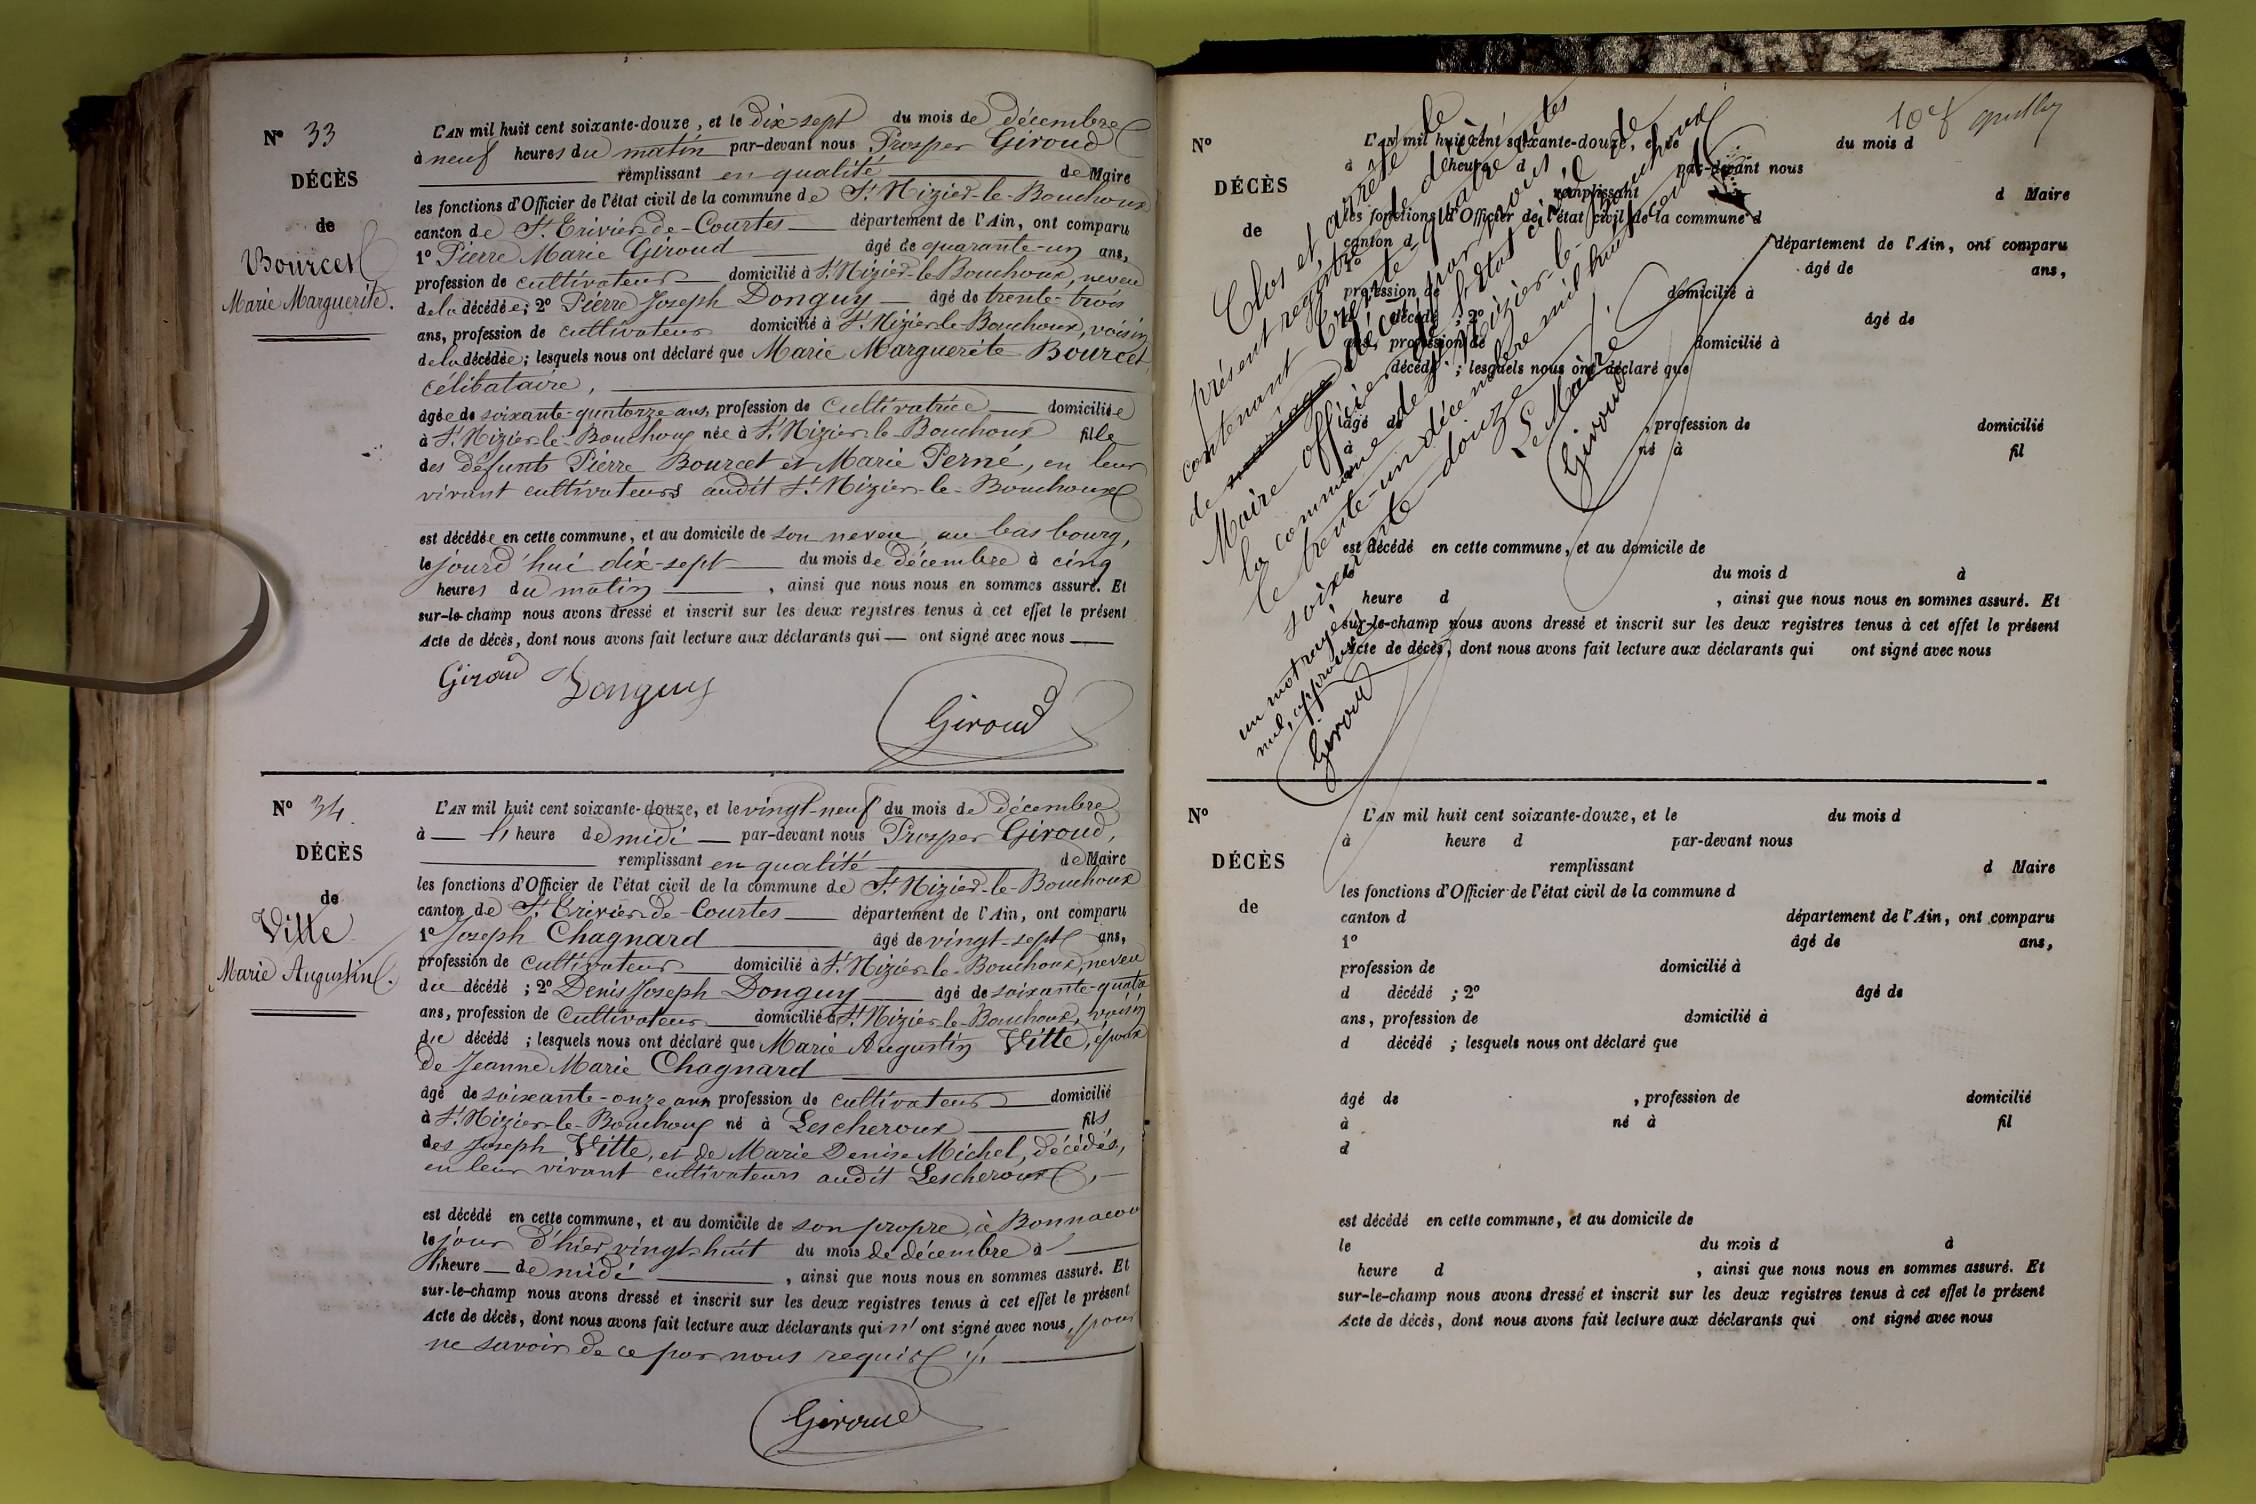 N° 33
DÉCÈS
de
Bourcet
Marie Marguerite.
L'AN mil huit cent soixante-douze, et le dix-sept du mois de décembre
à neuf heures du matin par-devant nous Prosper Giroud
remplissant en qualité de Maire
les fonctions d'Officier de l'état civil de la commune de St Nizier-le-Bouchoux
canton de St Trivier-de-Courtes département de l'Ain, ont comparu
1° Pierre Marie Giroud âgé de quarante-un ans,
profession de cultivateur domicilié à St Nizier-le-Bouchoux, neveu
de la décédée; 2° Pierre Joseph Donguy âgé de trente-trois
ans, profession de cultivateur domicilié à St Nizier-le-Bouchoux, voisin
de la décédée; lesquels nous ont déclaré que Marie Marguerite Bourcet,
célibataire,
âgée de soixante-quatorze ans, profession de cultivatrice domiciliée
à St Nizier-le-Bouchoux née à St Nizier-le-Bouchoux fille
des défunts Pierre Bourcet et Marie Perné, en leur
vivant cultivateurs audit St Nizier-le-Bouchoux
est décédée en cette commune, et au domicile de son neveu, au bas bourg,
le jourd'hui dix-sept du mois de décembre à cinq
heures du matin, ainsi que nous nous en sommes assuré. Et
sur-le-champ nous avons dressé et inscrit sur les deux registres tenus à cet effet le présent
Acte de décès, dont nous avons fait lecture aux déclarants qui — ont signé avec nous —
Giroud Donguy
Giroud
N° 34.
DÉCÈS
de
Vitte
Marie Augustin.
L'AN mil huit cent soixante-douze, et le vingt-neuf du mois de décembre
à — l'heure de midi — par-devant nous Prosper Giroud,
remplissant en qualité de Maire
les fonctions d'Officier de l'état civil de la commune de St Nizier-le-Bouchoux
canton de St Trivier-de-Courtes département de l'Ain, ont comparu
1° Joseph Chagnard âgé de vingt-sept ans,
profession de cultivateur domicilié à St Nizier-le-Bouchoux, neveu
du décédé; 2° Denis Joseph Donguy âgé de soixante-quatre
ans, profession de cultivateur domicilié à St Nizier-le-Bouchoux, voisin
du décédé; lesquels nous ont déclaré que Marie Augustin Vitte, époux
de Jeanne Marie Chagnard
âgé de soixante-onze ans profession de cultivateur domicilié
à St Nizier-le-Bouchoux né à Lescheroux fils
des Joseph Vitte, et de Marie Denise Michel, décédés,
en leur vivant cultivateurs audit Lescheroux,
est décédé en cette commune, et au domicile de son propre, à
le jour d'hier vingt-huit du mois de décembre à —
l'heure — de midi, ainsi que nous nous en sommes assuré. Et
sur-le-champ nous avons dressé et inscrit sur les deux registres tenus à cet effet le présent
Acte de décès, dont nous avons fait lecture aux déclarants qui n'ont signé avec nous, pour
ne savoir de ce par nous requis
Giroud
10e
N°
DÉCÈS
de
L'AN mil huit cent soixante-douze, et le du mois d
à heure d par-devant nous
remplissant d Maire
les fonctions d'Officier de l'état civil de la commune d
canton d département de l'Ain, ont comparu
1° âgé de ans,
profession de domicilié à
d décédé ; 2° âgé de
ans, profession de domicilié à
d décédé ; lesquels nous ont déclaré que
âgé de , profession de domicilié
à né à fil
est décédé en cette commune, et au domicile de
du mois d à
heure d , ainsi que nous nous en sommes assuré. Et
sur-le-champ nous avons dressé et inscrit sur les deux registres tenus à cet effet le présent
Acte de décès, dont nous avons fait lecture aux déclarants qui ont signé avec nous
Clos et arrêté le
présent registre de décès
contenant trente-quatre actes
de mariage décès par nous
Maire officier de l'état civil de
la commune de St Nizier-le-Bouchoux
le trente-un décembre mil huit cent
soixante-douze
Le Maire
Giroud
un mot rayé
nul, approuvé
Giroud
N°
DÉCÈS
de
L'AN mil huit cent soixante-douze, et le du mois d
à heure d par-devant nous
remplissant d Maire
les fonctions d'Officier de l'état civil de la commune d
canton d département de l'Ain, ont comparu
1° âgé de ans,
profession de domicilié à
d décédé ; 2° âgé de
ans, profession de domicilié à
d décédé ; lesquels nous ont déclaré que
âgé de , profession de domicilié
à né à fil
d
est décédé en cette commune, et au domicile de
le du mois d à
heure d , ainsi que nous nous en sommes assuré. Et
sur-le-champ nous avons dressé et inscrit sur les deux registres tenus à cet effet le présent
Acte de décès, dont nous avons fait lecture aux déclarants qui ont signé avec nous